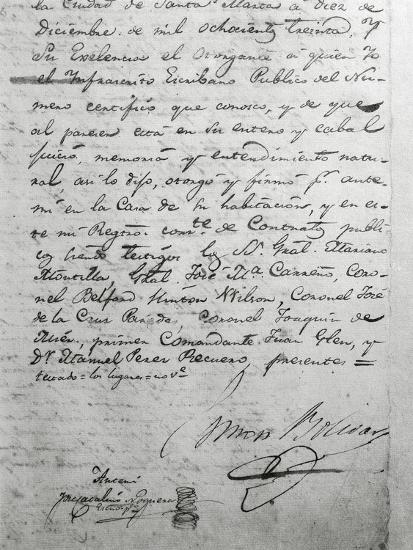 la Ciudad de Santa Marta a diez de
Diciembre de mil ochocientos treinta. Y
Su Exelencia el Otorgante a quien Yo
el Infrascrito Escribano Publico del Nu-
mero certifico que conosco, y de que
al parecer está en su entero y cabal
juicio, memoria y entendimiento natu-
ral asi lo dijo, otorgó y firmó pr. ante-
mi en la Casa de su habitacion, y en es-
te mi Registro corrte. de Contratos publi-
cos siendo testigos los SS. Gral. Mariano
Montilla Gral. José Ma. Carreño, Coro-
nel Belford Hinton Wilson, Coronel José
de la Cruz Paredes, Coronel Joaquin de
Mier, primer Comandante Juan Glen, y
Dr. Manuel Perez Recuero presentes =
Simon Bolivar
Ante mi
José Catalino Noguera
Escno. pco.